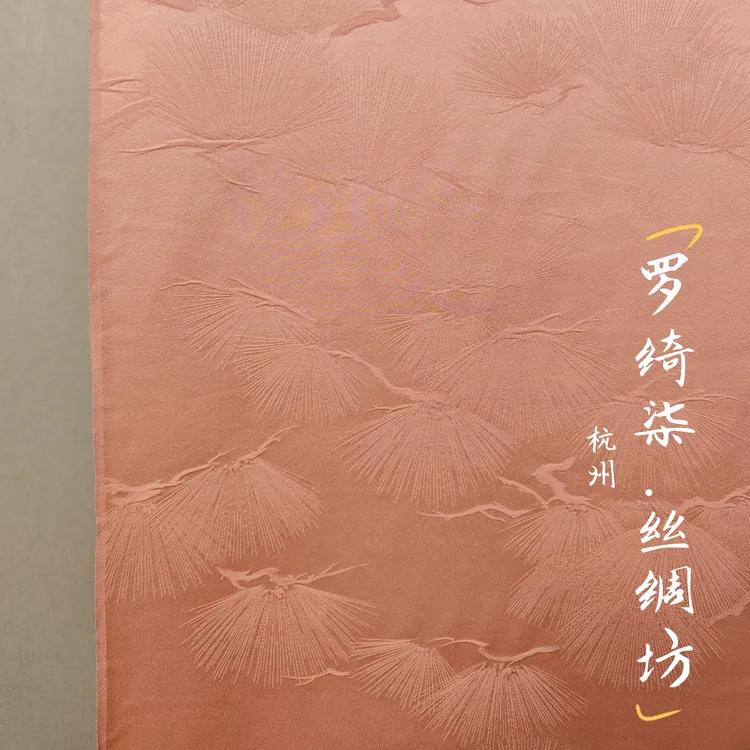 「罗绮柒·丝绸坊」
杭州